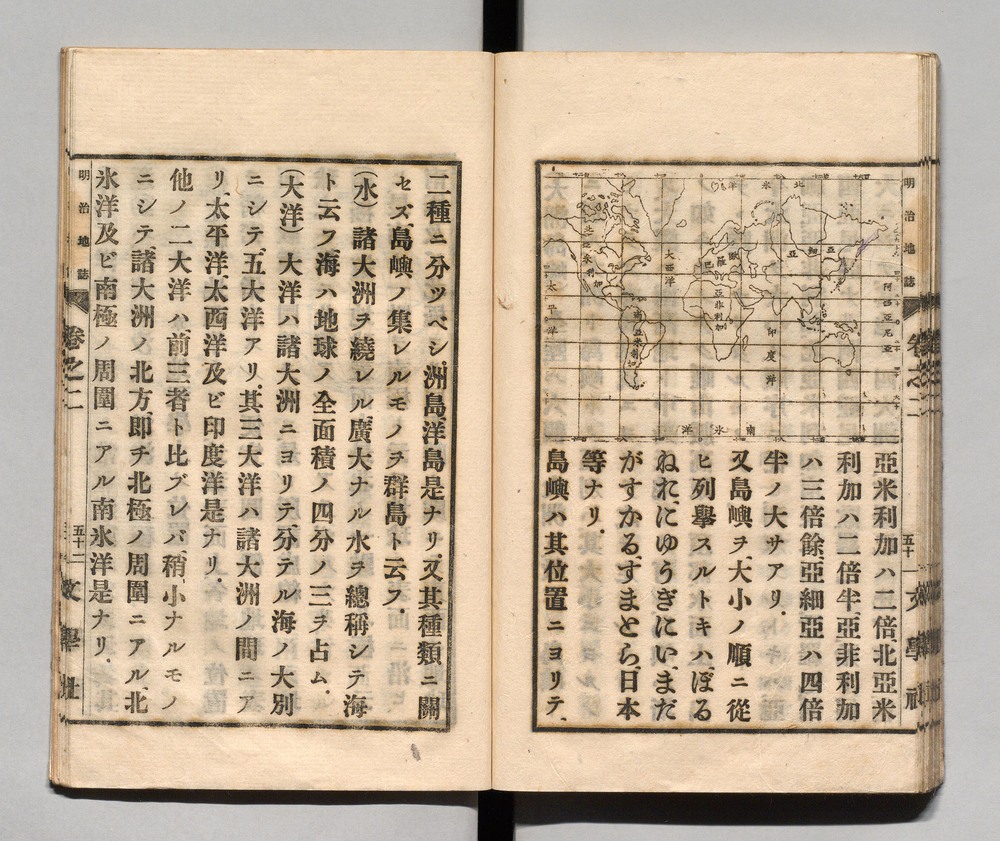 明治地誌
卷之二
五十一
文學社
北氷洋
亞細亞
歐羅巴
亞非利加
大西洋
北亞米利加
南亞米利加
太平洋
印度洋
阿西亞尼亞
南氷洋
亞米利加ハ二倍北亞米
利加ハ二倍半亞非利加
ハ三倍餘、亞細亞ハ四倍
半ノ大サアリ.
又島嶼ヲ、大小ノ順ニ從
ヒ列擧スルトキハ、ぼる
ねれ、にゆうぎにい、まだ
がすかる、すまとら、日本
等ナリ.
島嶼ハ其位置ニヨリテ、
二種ニ分ツベシ、洲島、洋島是ナリ、又其種類ニ關
セズ、島嶼ノ集レルモノヲ群島ト云フ.
(水) 諸大洲ヲ繞レル廣大ナル水ヲ總稱シテ海
ト云フ、海ハ地球ノ全面積ノ四分ノ三ヲ占ム.
(大洋) 大洋ハ諸大洲ニヨリテ、分テル海ノ大別
ニシテ、五大洋アリ.其三大洋ハ諸大洲ノ間ニア
リ、太平洋、太西洋及ビ印度洋是ナリ.
他ノ二大洋ハ前三者ト比ブレバ、稍、小ナルモノ
ニシテ、諸大洲ノ北方、即チ北極ノ周圍ニアル、北
氷洋及ビ南極ノ周圍ニアル南氷洋是ナリ.
明治地誌
卷之二
五十二
文學社